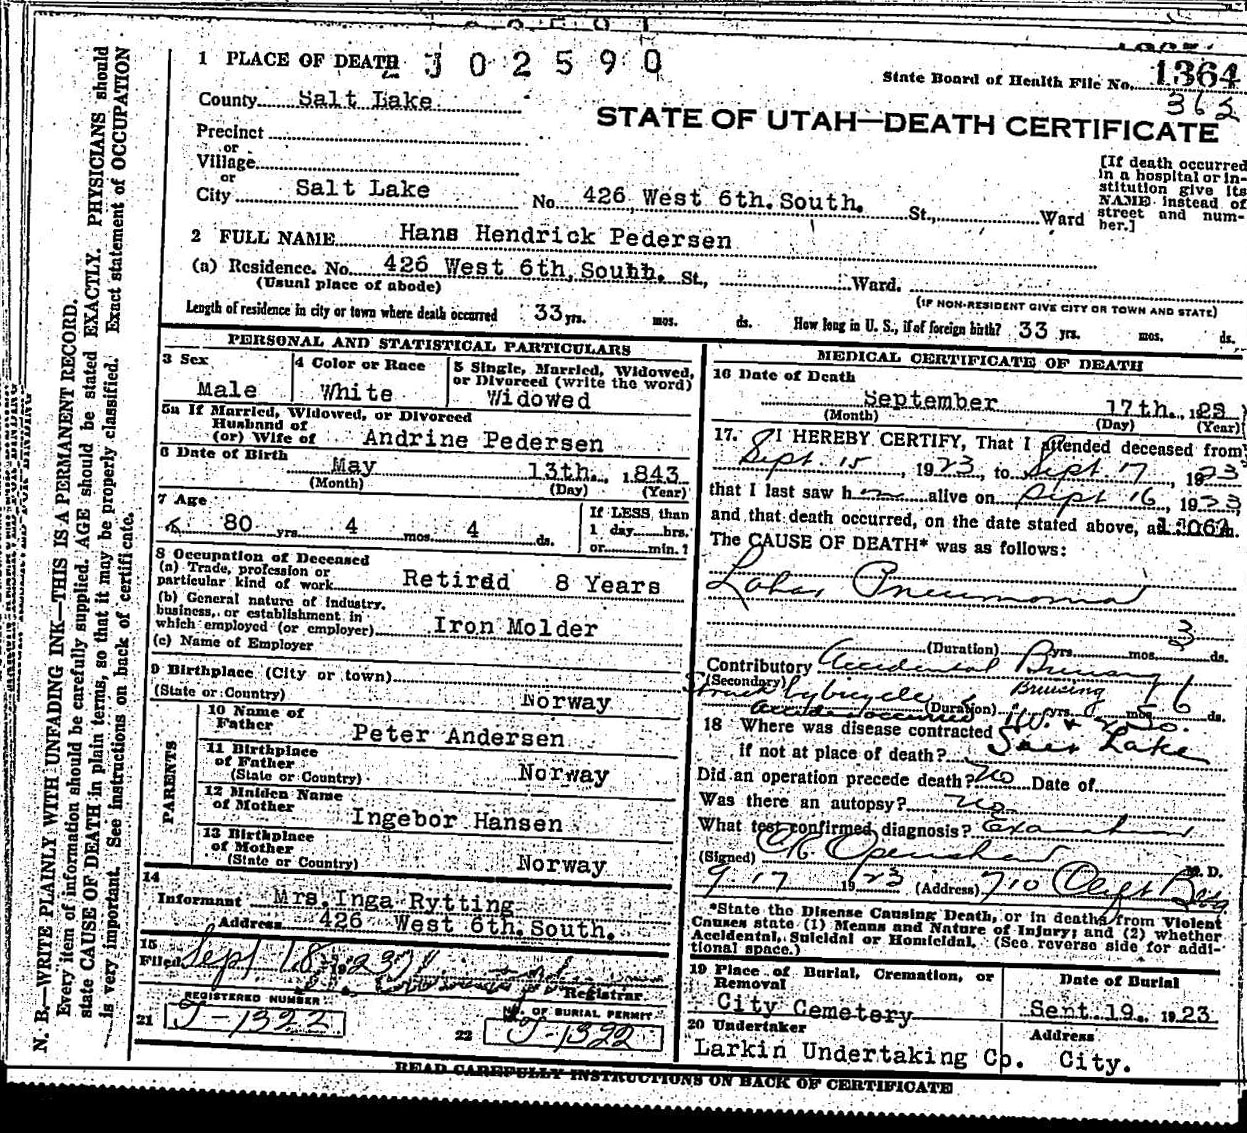 1 PLACE OF DEATH J 0 2 5 9 0
State Board of Health File No. 1364
County Salt Lake
STATE OF UTAH—DEATH CERTIFICATE
Precinct
or
Village
or
City Salt Lake No. 426 West 6th. South. St., Ward
[If death occurred in a hospital or in-
stitution give its
NAME instead of
street and num-
ber.]
2 FULL NAME Hans Hendrick Pedersen
(a) Residence. No. 426 West 6th. South. St., Ward.
(Usual place of abode)
(IF NON-RESIDENT GIVE CITY OR TOWN AND STATE)
Length of residence in city or town where death occurred 33 yrs. mos. ds. How long in U. S., if of foreign birth? 33 yrs. mos. ds.
PERSONAL AND STATISTICAL PARTICULARS
3 Sex
Male
4 Color or Race
White
5 Single, Married, Widowed,
or Divorced (write the word)
Widowed
5a If Married, Widowed, or Divorced
Husband of
(or) Wife of Andrine Pedersen
6 Date of Birth May 13th., 1843
(Month) (Day) (Year)
7 Age
80 yrs. 4 mos. 4 ds.
If LESS than
1 day hrs.
or min.?
8 Occupation of Deceased
(a) Trade, profession or
particular kind of work Retired 8 Years
(b) General nature of industry,
business, or establishment in
which employed (or employer) Iron Molder
(c) Name of Employer
9 Birthplace (City or town)
(State or Country) Norway
PARENTS
10 Name of
Father Peter Andersen
11 Birthplace
of Father
(State or Country) Norway
12 Maiden Name
of Mother Ingebor Hansen
13 Birthplace
of Mother
(State or Country) Norway
14
Informant Mrs. Inga Rytting
Address 426 West 6th. South.
15
Filed Sept 18 1923
Registrar.
REGISTERED NUMBER
21 J-1322
No. OF BURIAL PERMIT
22 J-1322
MEDICAL CERTIFICATE OF DEATH
16 Date of Death
September 17th. 1923
(Month) (Day) (Year)
17. I HEREBY CERTIFY, That I attended deceased from
Sept. 15, 1923, to Sept 17, 1923
that I last saw h alive on Sept 16, 1923
and that death occurred, on the date stated above, at m.
The CAUSE OF DEATH* was as follows:
Lobar Pneumonia
(Duration) yrs. mos. 3 ds.
Contributory Accidental Bruising
(Secondary) Struck by bicycle Bruising
accident occurred (Duration) yrs. mos. 6 ds.
18 Where was disease contracted
if not at place of death? Salt Lake
Did an operation precede death? No Date of
Was there an autopsy? no
What test confirmed diagnosis? Examination
(Signed) Openshaw M. D.
9 17 1923 (Address) 710 Clift Bldg
*State the Disease Causing Death, or in deaths from Violent
Causes state (1) Means and Nature of Injury; and (2) whether
Accidental, Suicidal or Homicidal. (See reverse side for addi-
tional space.)
19 Place of Burial, Cremation, or
Removal
City Cemetery
Date of Burial
Sept. 19. 1923
20 Undertaker
Larkin Undertaking Co.
Address
City.
READ CAREFULLY INSTRUCTIONS ON BACK OF CERTIFICATE
N. B.—WRITE PLAINLY WITH UNFADING INK—THIS IS A PERMANENT RECORD.
Every item of information should be carefully supplied. AGE should be stated EXACTLY. PHYSICIANS should
state CAUSE OF DEATH in plain terms, so that it may be properly classified. Exact statement of OCCUPATION
is very important. See instructions on back of certificate.